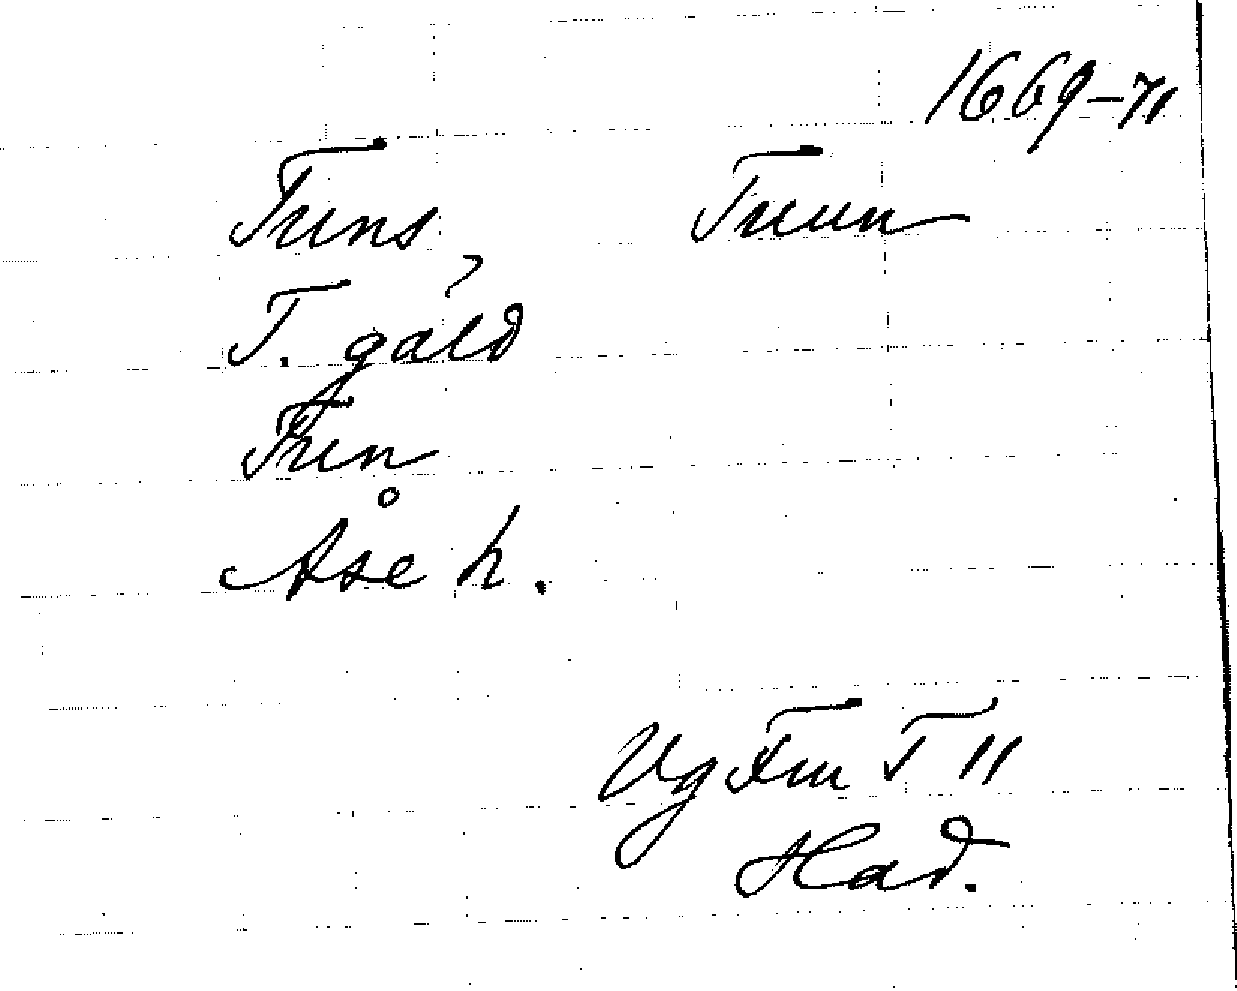 1669-71
Tuns Tuun
T. gäld
Tun
Åse h.
Vg Fm T 11
Had.